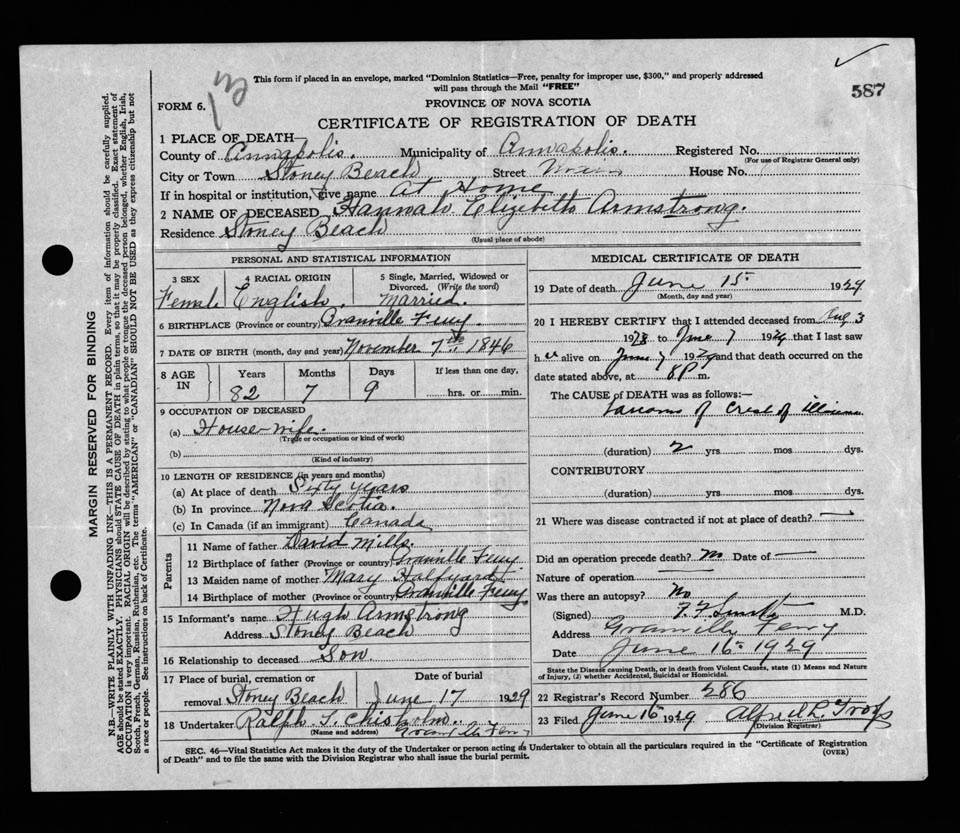 This form if placed in an envelope, marked "Dominion Statistics—Free, penalty for improper use, $300," and properly addressed
will pass through the Mail "FREE"
587
FORM 6.
PROVINCE OF NOVA SCOTIA
CERTIFICATE OF REGISTRATION OF DEATH
1 PLACE OF DEATH—
County of Annapolis. Municipality of Annapolis. Registered No.
(For use of Registrar General only)
City or Town Stoney Beach Street House No.
If in hospital or institution, give name At Home
2 NAME OF DECEASED Hannah Elizabeth Armstrong.
Residence Stoney Beach
(Usual place of abode)
PERSONAL AND STATISTICAL INFORMATION
3 SEX Female
4 RACIAL ORIGIN English.
5 Single, Married, Widowed or Divorced. (Write the word) Married.
6 BIRTHPLACE (Province or country) Granville Ferry.
7 DATE OF BIRTH (month, day and year) November 7th 1846
8 AGE IN Years 82 Months 7 Days 9 If less than one day, hrs. or min.
9 OCCUPATION OF DECEASED
(a) House-wife.
(Trade or occupation or kind of work)
(b)
(Kind of industry)
10 LENGTH OF RESIDENCE (in years and months)
(a) At place of death Sixty years
(b) In province Nova Scotia.
(c) In Canada (if an immigrant) Canada
Parents
11 Name of father David Mills.
12 Birthplace of father (Province or country) Granville Ferry
13 Maiden name of mother Mary Halfyard
14 Birthplace of mother (Province or country) Granville Ferry
15 Informant's name Hugh Armstrong
Address Stoney Beach
16 Relationship to deceased Son.
17 Place of burial, cremation or removal Stoney Beach Date of burial June 17 1929
18 Undertaker Ralph T. Chisholm. Granville Ferry
(Name and address)
MEDICAL CERTIFICATE OF DEATH
19 Date of death June 15 1929
(Month, day and year)
20 I HEREBY CERTIFY that I attended deceased from Aug 3
1928 to June 7 1929 that I last saw
her alive on June 7 1929 and that death occurred on the
date stated above, at 8 P.m.
The CAUSE of DEATH was as follows:—
Sarcoma of Crest of
(duration) 2 yrs mos dys.
CONTRIBUTORY
(duration) yrs. mos. dys.
21 Where was disease contracted if not at place of death? —
Did an operation precede death? No Date of —
Nature of operation —
Was there an autopsy? No
(Signed) M.D.
Address Granville Ferry
Date June 16 1929
State the Disease causing Death, or in death from Violent Causes, state (1) Means and Nature
of Injury, (2) whether Accidental, Suicidal or Homicidal.
22 Registrar's Record Number 286
23 Filed June 16 1929 Alfred R. Troop
(Division Registrar)
SEC. 46—Vital Statistics Act makes it the duty of the Undertaker or person acting as Undertaker to obtain all the particulars required in the "Certificate of Registration
of Death" and to file the same with the Division Registrar who shall issue the burial permit.
(OVER)
MARGIN RESERVED FOR BINDING
N.B.—WRITE PLAINLY WITH UNFADING INK—THIS IS A PERMANENT RECORD. Every item of information should be carefully supplied.
AGE should be stated EXACTLY. PHYSICIANS should STATE CAUSE OF DEATH in plain terms, so that it may be properly classified. Exact statement of
OCCUPATION is very important. RACIAL ORIGIN will be described by stating to what people or tongue the deceased person belonged, whether English, Irish,
Scotch, French, German, Russian, Ruthenian, etc. The terms "AMERICAN" or "CANADIAN" SHOULD NOT BE USED as they express citizenship but not
a race or people. See instructions on back of Certificate.